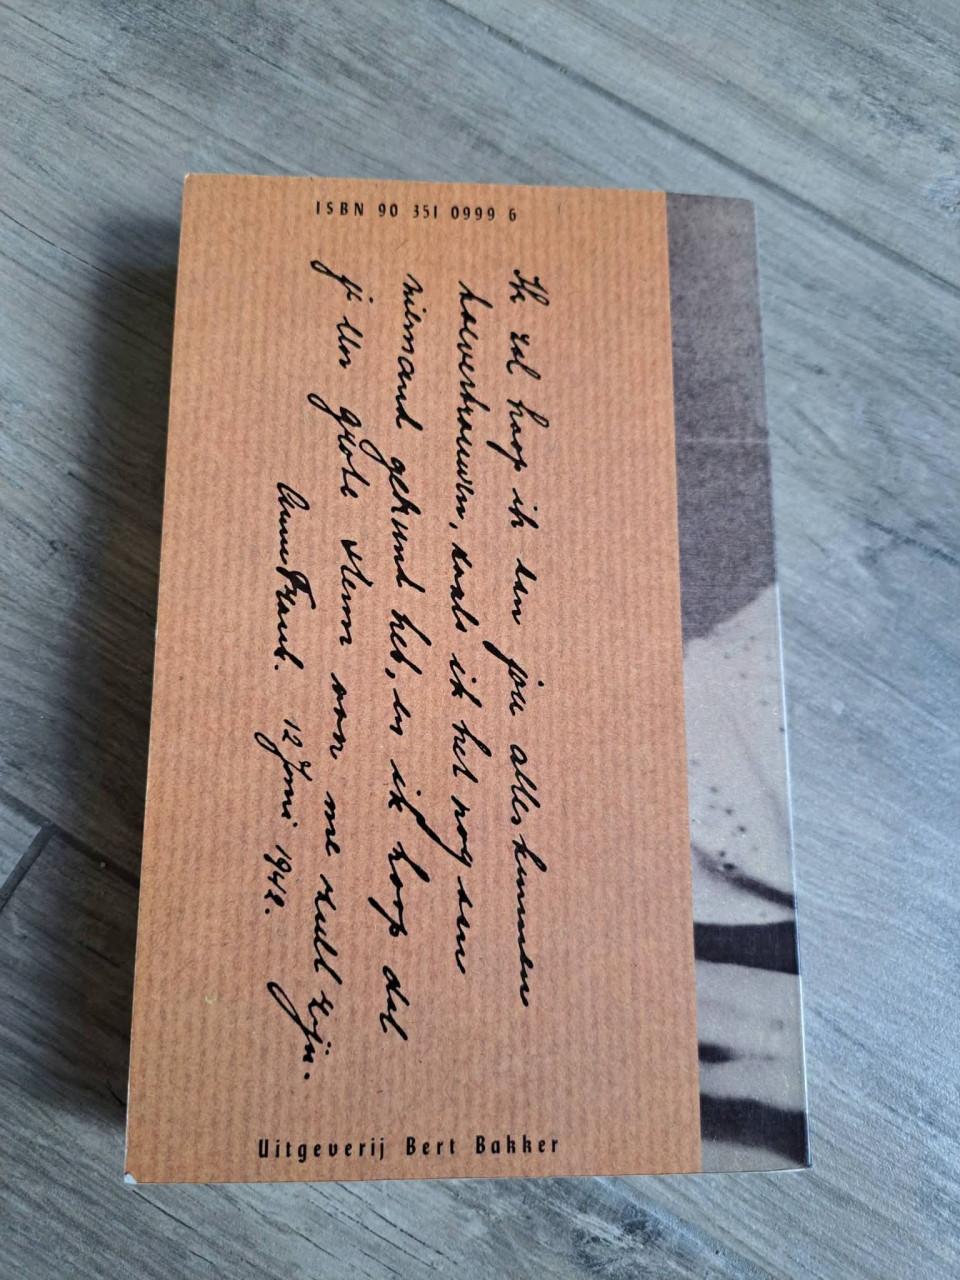 ISBN 90 351 0999 6
Ik zal hoop ik aan jou alles kunnen
toevertrouwen, zoals ik het nog aan
niemand gekund heb, en ik hoop dat
je een grote steun van me zult zijn.
Anne Frank. 12 Juni 1942.
Uitgeverij Bert Bakker